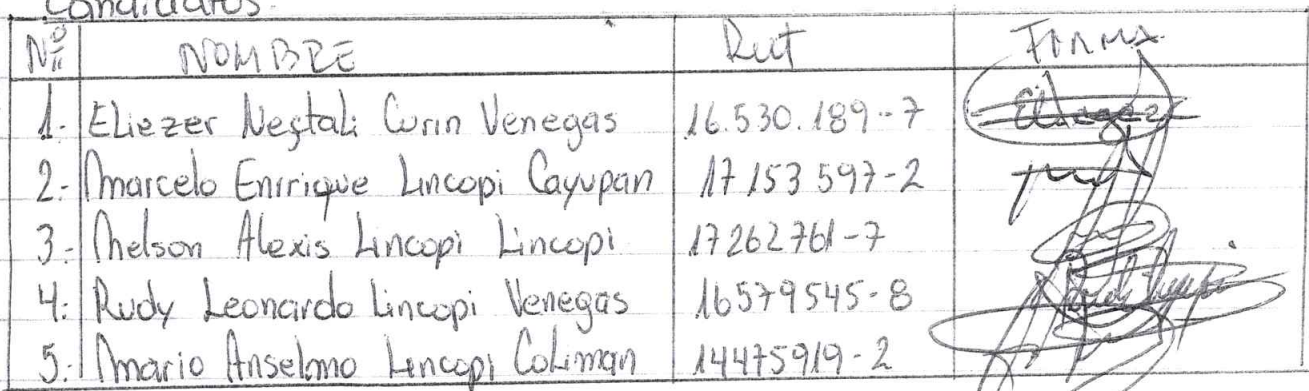 Candidatos.
Nº NOMBRE Rut FIRMA
1.- Eliezer Neftali Curin Venegas 16.530.189-7 Eliezer
2.- Marcelo Enrrique Lincopi Cayupan 17153597-2
3.- Nelson Alexis Lincopi Lincopi 17262761-7
4.- Rudy Leonardo Lincopi Venegas 16579545-8
5.- Mario Anselmo Lincopi Coliman 14475919-2